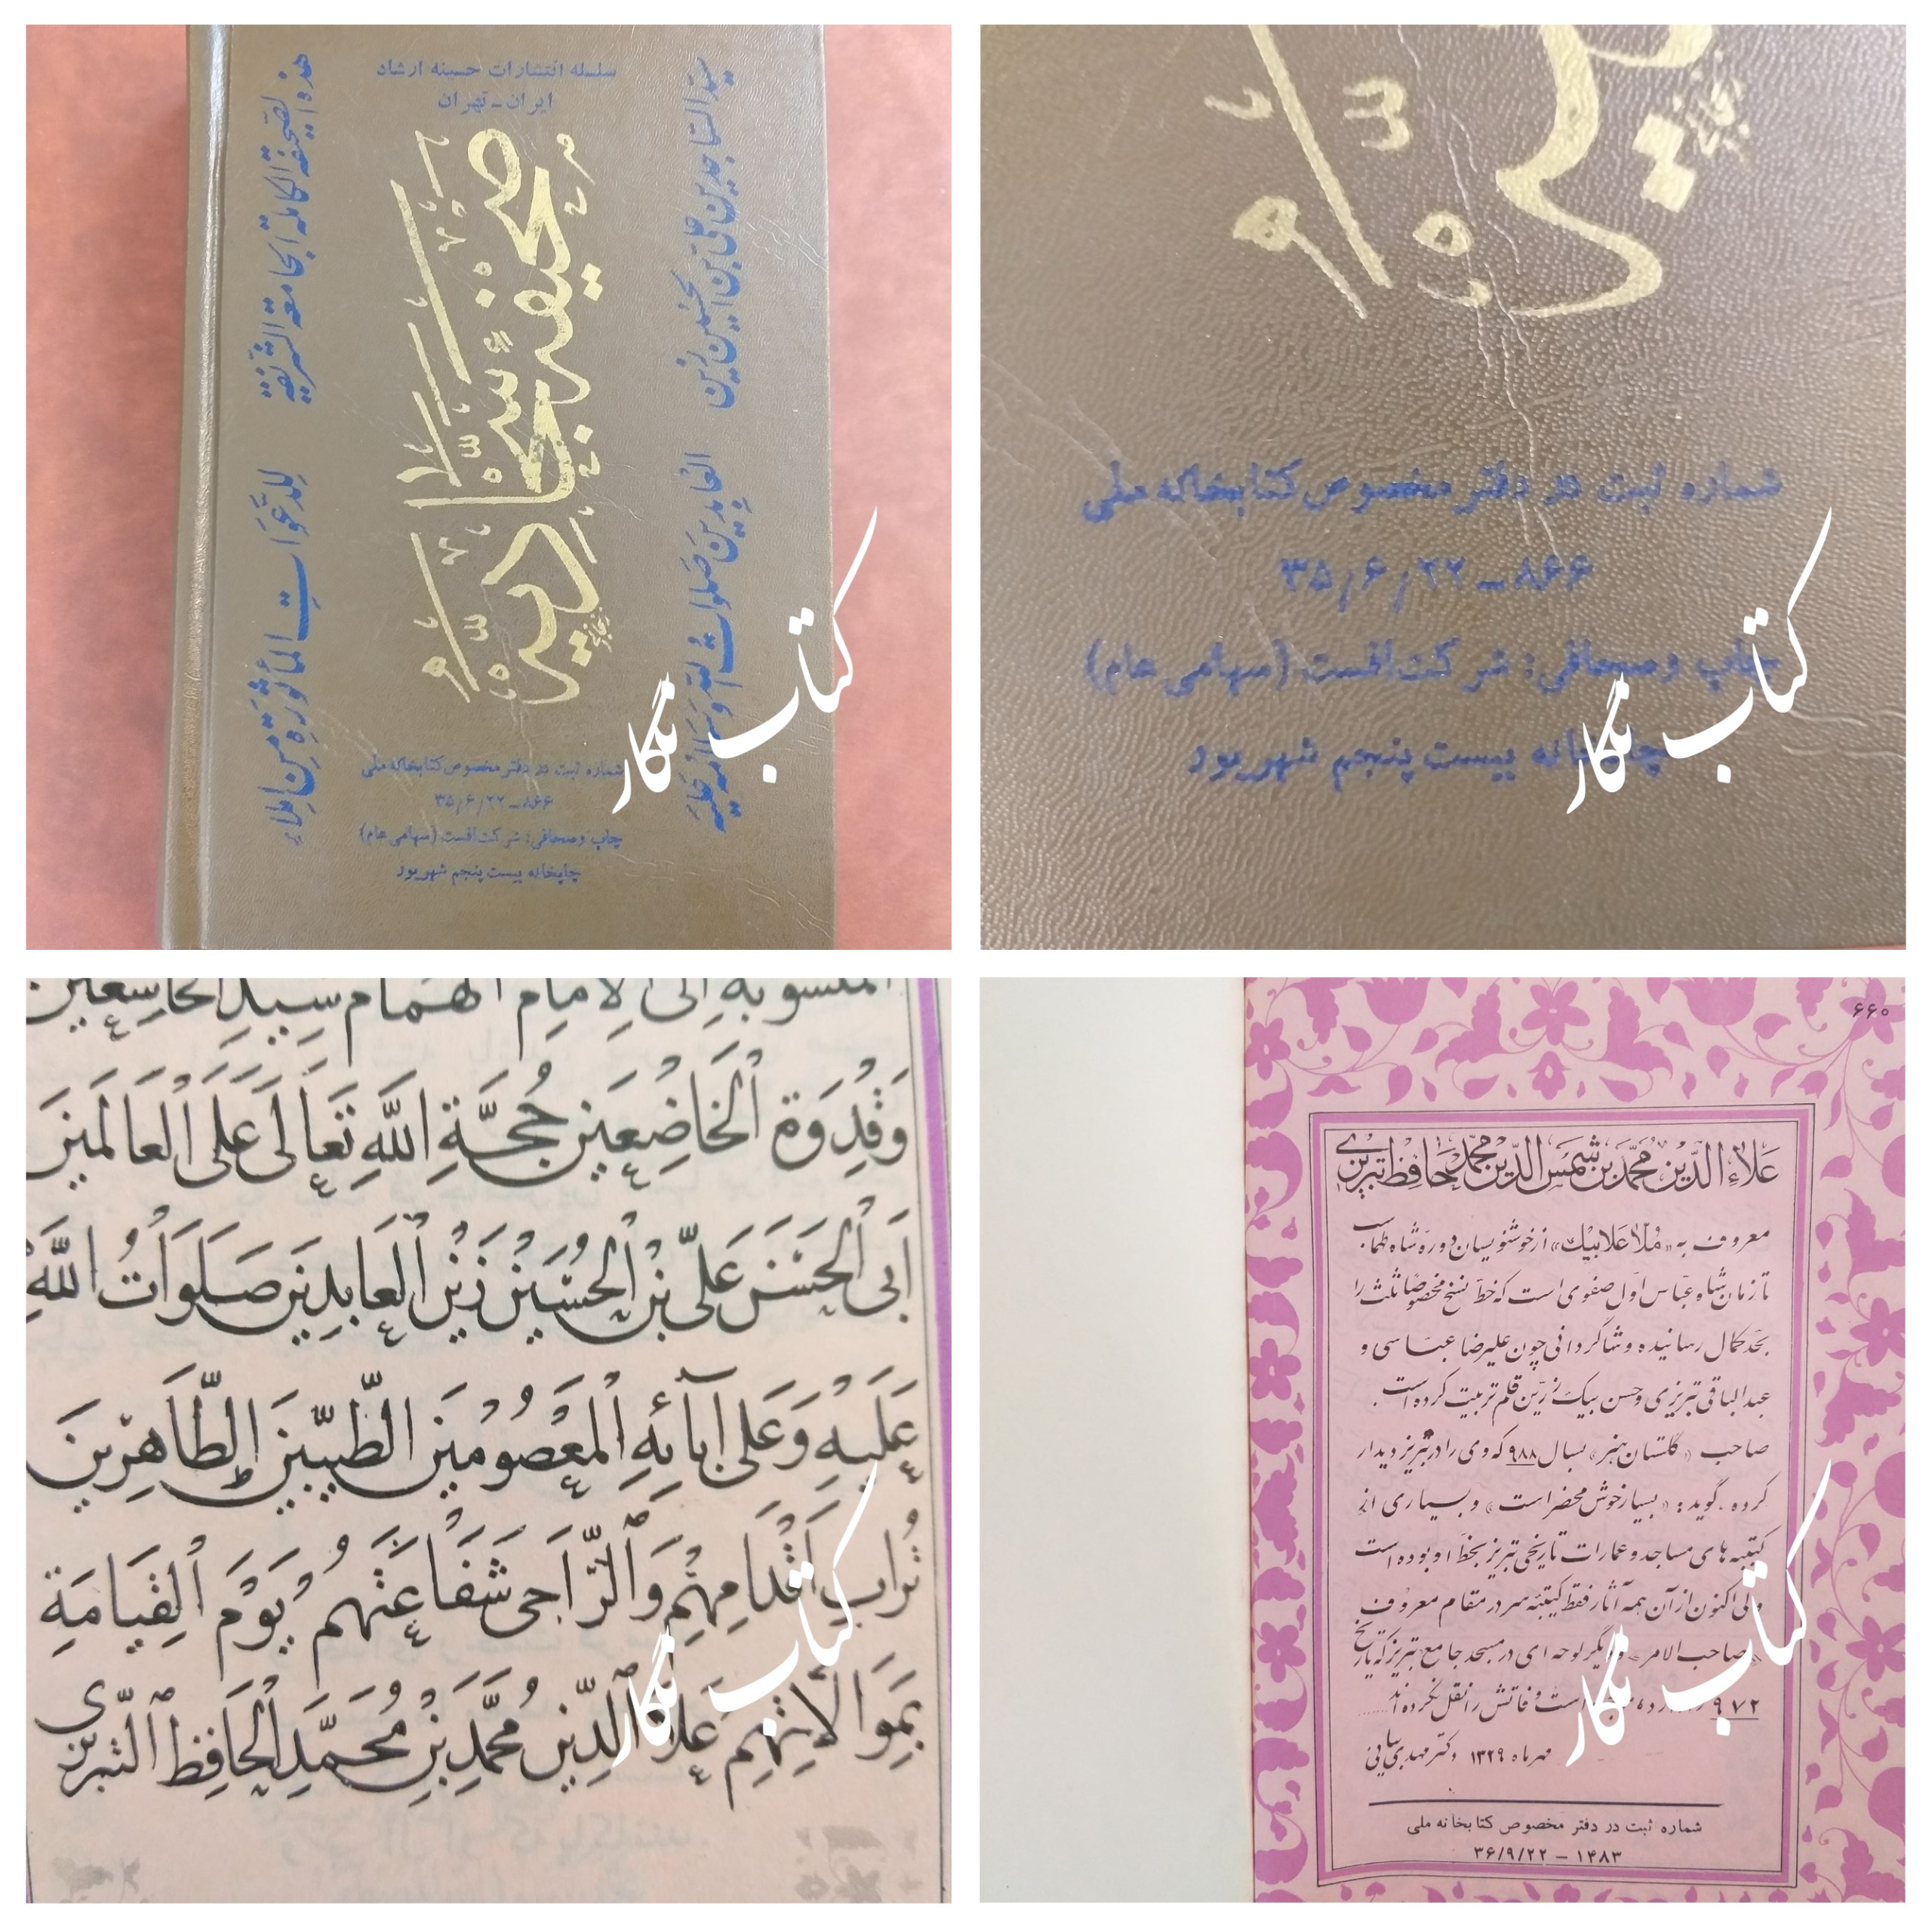 سلسله انتشارات حسینه ارشاد
ایران - تهران
هذه الصحیفة الکاملة الجامعة الشریفة
للدعوات المأثورة من
صحیفه سجادیه
سید الساجدین علی بن الحسین زین
العابدین صلوات الله و سلامه علیه
شماره ثبت در دفتر مخصوص کتابخانه ملی
۸۶۶ - ۳۵/۶/۲۲
چاپ وصحافی: شرکت افست (سهامی عام)
چاپخانه بیست پنجم شهریور
کتاب نگار
شماره ثبت در دفتر مخصوص کتابخانه ملی
۸۶۶ - ۳۵/۶/۲۲
چاپ وصحافی: شرکت افست (سهامی عام)
چاپخانه بیست پنجم شهریور
کتاب نگار
المنسوبه إلى الإمام الهمام سید الخاشعین
وَقُدْوَةِ الْخَاضِعِينَ حُجَّةِ اللَّهِ تَعَالَى عَلَى الْعَالَمِينَ
أَبِي الْحَسَنِ عَلِيِّ بْنِ الْحُسَيْنِ زَيْنِ الْعَابِدِينَ صَلَوَاتُ اللَّهِ
عَلَيْهِ وَعَلَى آبَائِهِ الْمَعْصُومِينَ الطَّيِّبِينَ الطَّاهِرِينَ
تُرَابِ أَقْدَامِهِمْ وَالرَّاجِي شَفَاعَتَهُم يَوْمَ الْقِيَامَةِ
بِمُوَالَاتِهِمْ عَلَاءُ الدِّينِ مُحَمَّدِ بْنِ مُحَمَّدِ الْحَافِظِ التَّبْرِيزِي
کتاب نگار
۶۶۰
عَلاءُ الدّین مُحَمَّد بن شَمسُ الدّین مُحَمَّد حافِظ تبریزی
معروف به «مُلّا عَلا بیک» از خوشنویسان دوره شاه طهماسب
تا زمان شاه عباس اول صفوی است که خط نسخ مخصوصاً ثلث را
بحد کمال رسانیده و شاگردانی چون علیرضا عباسی و
عبدالباقی تبریزی و حسن بیک زرین قلم تربیت کرده است.
صاحب «گلستان هنر» بسال ۹۸۸ که وی را در تبریز دیدار
کرده، گوید: «بسیار خوش محضر است» و بسیاری از
کتیبه های مساجد و عمارات تاریخی تبریز بخط او بوده است
ولی اکنون از آن همه آثار فقط کتیبه سر در مقام معروف
«صاحب الامر» و دیگر لوحه ای در مسجد جامع تبریز که تاریخ
۹۷۲ است وفاتش را نقل نکرده اند......
مهرماه ۱۳۲۹ دکتر مهدی بیانی
شماره ثبت در دفتر مخصوص کتابخانه ملی
۱۴۸۳ - ۳۶/۹/۲۲
کتاب نگار